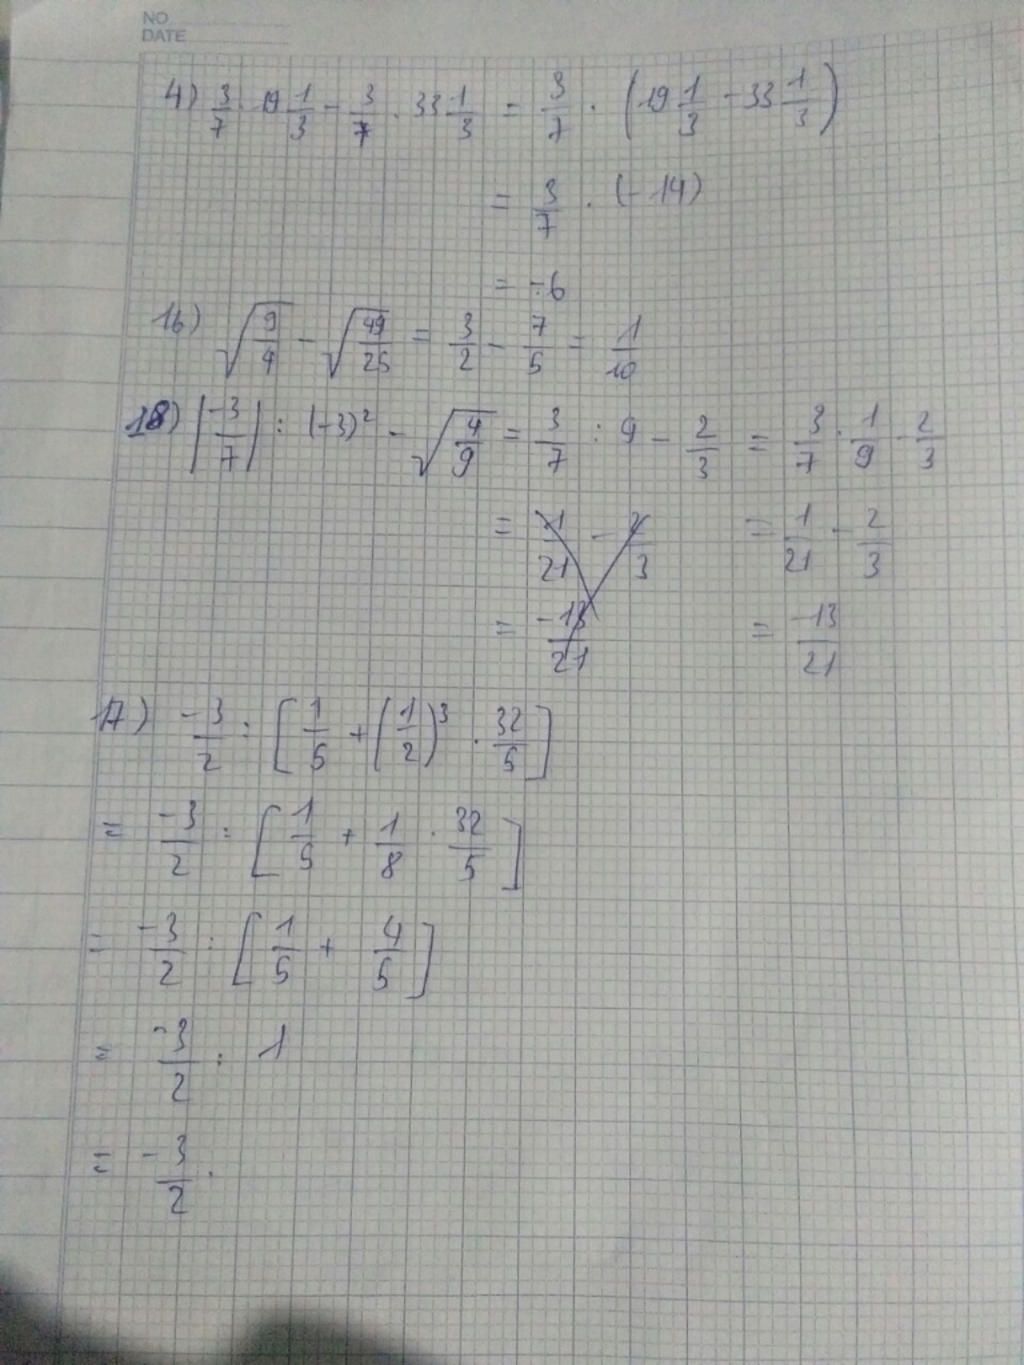 NO
DATE
4) 3/7 · 19 1/3 - 3/7 · 33 1/3 = 3/7 · (19 1/3 - 33 1/3)
= 3/7 · (-14)
= -6
16) √(9/4) - √(49/25) = 3/2 - 7/5 = 1/10
18) |-3/7| : (-3)² - √(4/9) = 3/7 : 9 - 2/3 = 3/7 · 1/9 - 2/3
= 1/21 - 2/3 = 1/21 - 2/3
= -13/21 = -13/21
17) -3/2 : [1/5 + (1/2)³ · 32/5]
= -3/2 : [1/5 + 1/8 · 32/5]
= -3/2 : [1/5 + 4/5]
= -3/2 : 1
= -3/2 .